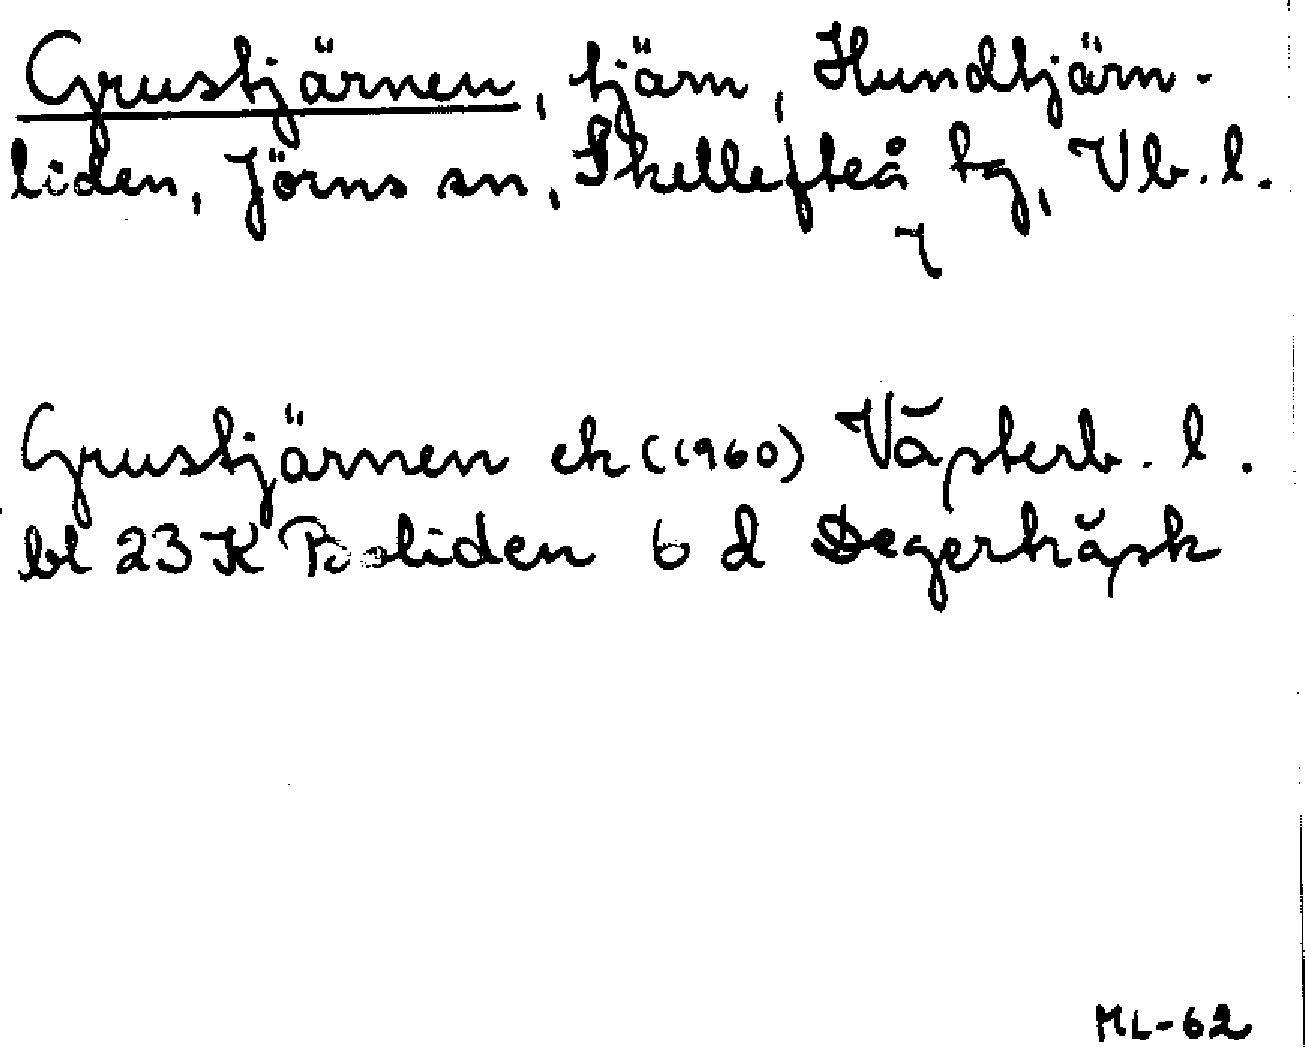 Grustjärnen, tjärn, Hundtjärn-
liden, Jörns sn, Skellefteå tg, Vb. l.
Grustjärnen ek (1960) Västerb. l.
bl 23 K Boliden 6 d Degerträsk
ML-62